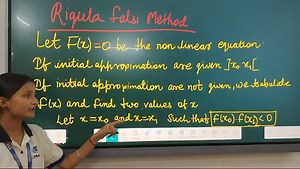 Rigula falsi Method
Let F(x)=0 be the non linear equation
If initial approximation are given ]x₀ x₁[
If initial approximation are not given, we tabulate
f(x) and find two values of x
Let x=x₀ and x=x₁ Such that f(x₀).f(x₁)<0